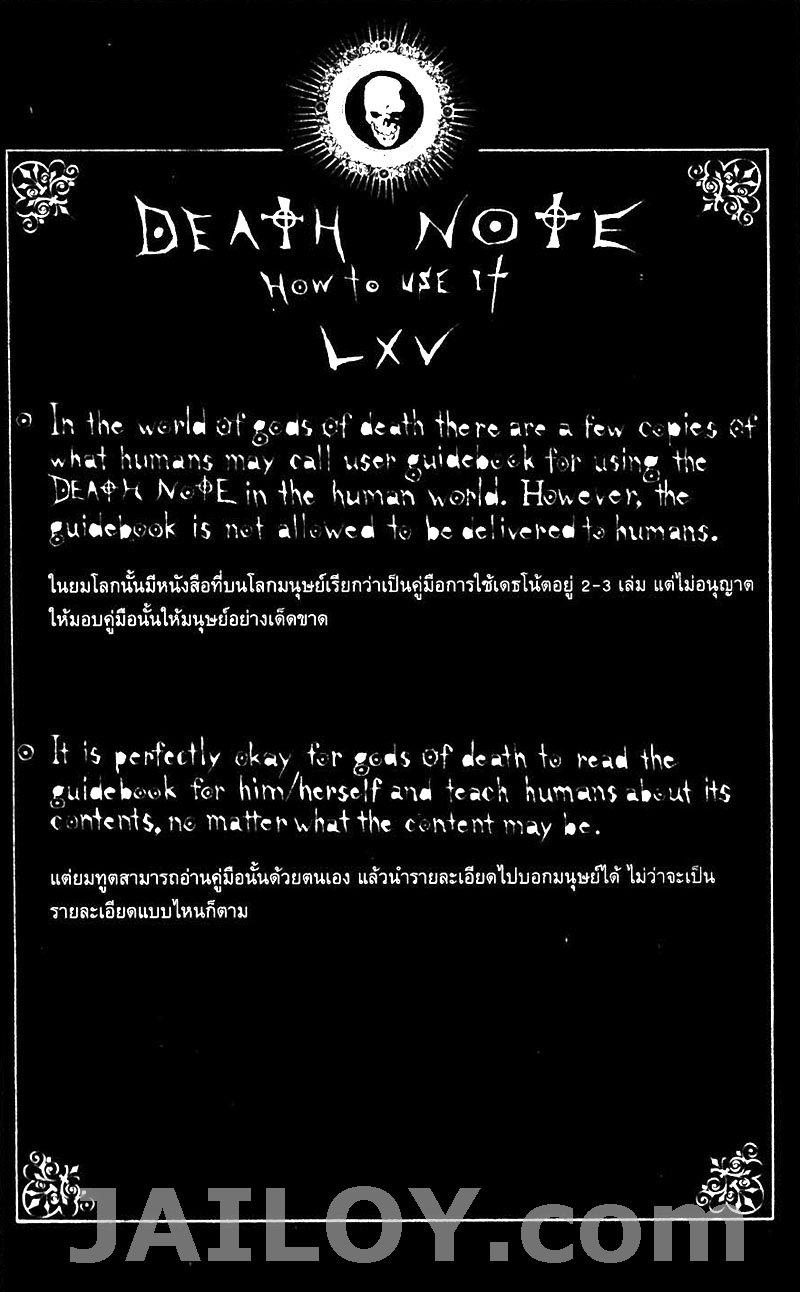 DEATH NOTE
HOW to USE IT
LXV
In the world of gods of death there are a few copies of
what humans may call user guidebook for using the
DEATH NOTE in the human world. However, the
guidebook is not allowed to be delivered to humans.
ในยมโลกนั้นมีหนังสือที่บนโลกมนุษย์เรียกว่าเป็นคู่มือการใช้เดธโน้ตอยู่ 2-3 เล่ม แต่ไม่อนุญาต
ให้มอบคู่มือนั้นให้มนุษย์อย่างเด็ดขาด
It is perfectly okay for gods of death to read the
guidebook for him/herself and teach humans about its
contents, no matter what the content may be.
แต่ยมทูตสามารถอ่านคู่มือนั้นด้วยตนเอง แล้วนำรายละเอียดไปบอกมนุษย์ได้ ไม่ว่าจะเป็น
รายละเอียดแบบไหนก็ตาม
JAILOY.com